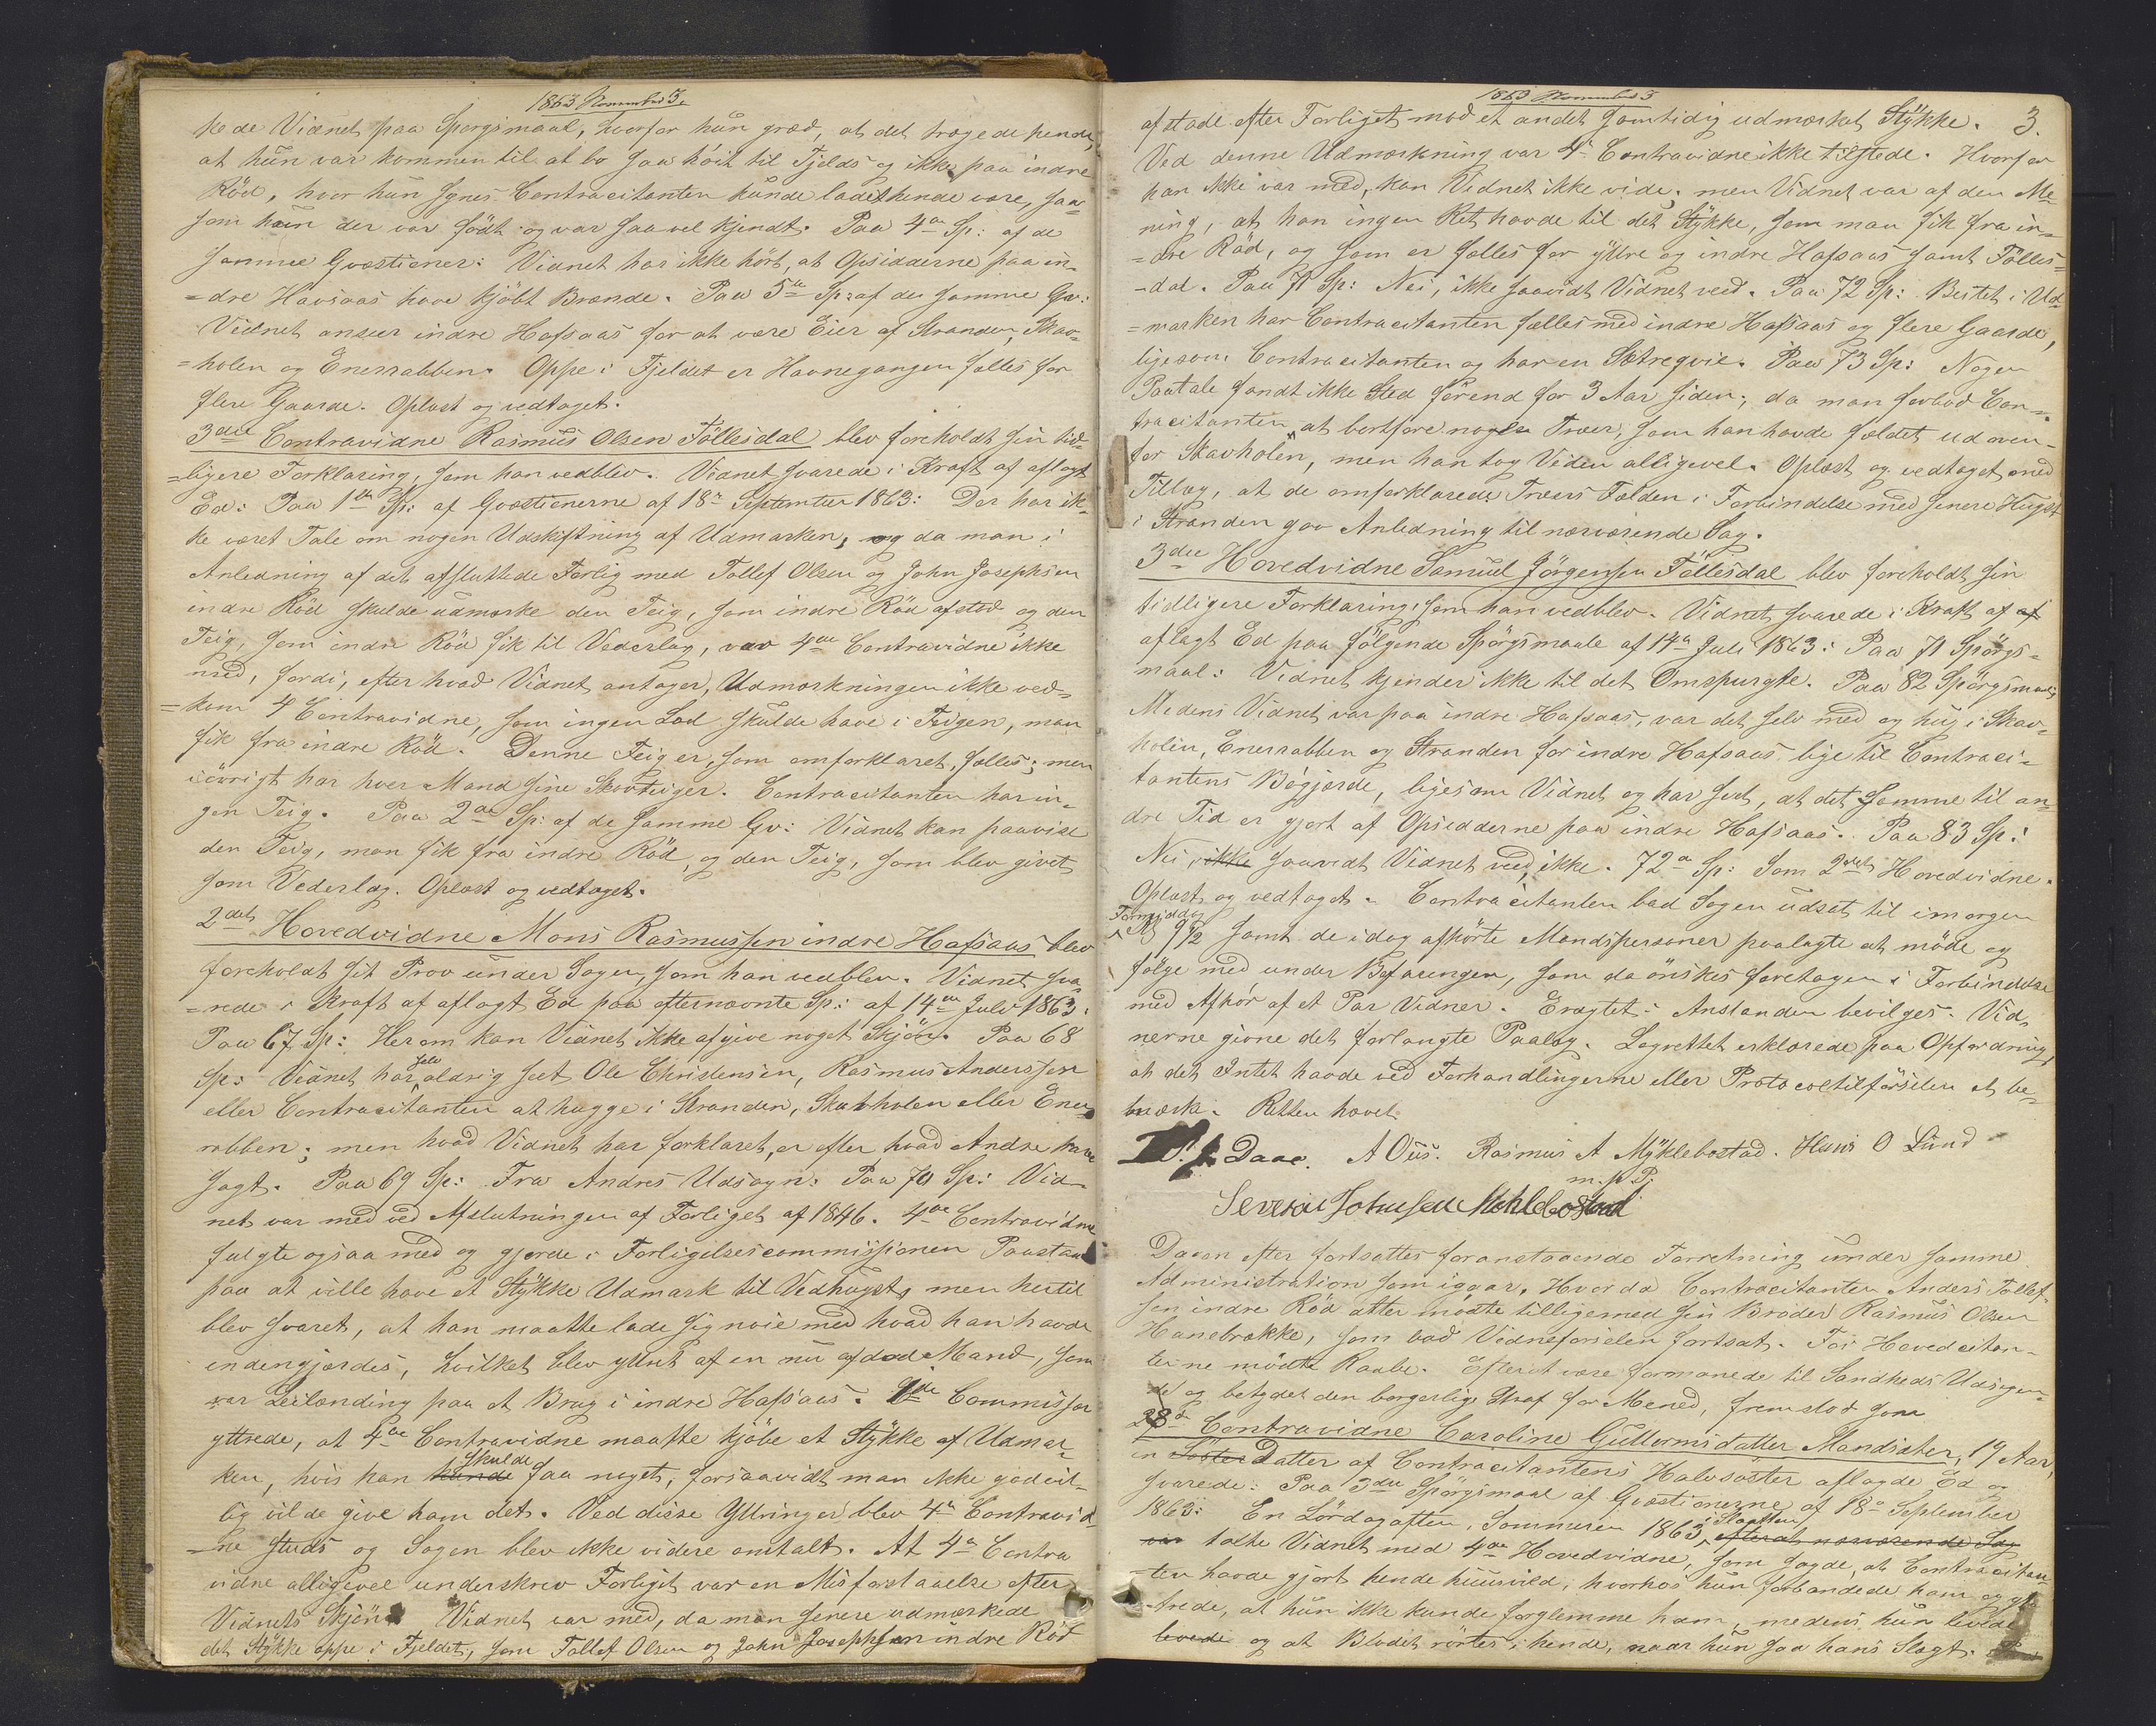 1863 November 3.
kede Vidnet paa Spørgsmaal, hvorfor hun græd, at det krøgede hende,
at hun var kommen til at bo saa høit til Fjelds og ikke paa indre
Röd, hvor hun synes Contracitanten kunde ladet hende være, saa
som han der var født og var saa vel kjendt. Paa 4de Sp: af de
samme Qvæstioner: Vidnet har ikke hørt, at Opsidderne paa in-
=dre Havsaas have kjøbt Brænde. Paa 5te Sp: af de samme Qv:
Vidnet anseer indre Hafsaas for at være Eier af Stranden, Skav-
=holen og Enerrabben. Oppe i Fjeldet er Havnegangen fælles for
flere Gaarde. Oplæst og vedtaget.
3die Contravidne Rasmus Olsen Föllesdal blev foreholdt sin tid-
=ligere Forklaring, som han vedblev. Vidnet svarede i Kraft af aflagt
Ed: Paa 1ste Sp: af Qvæstionerne af 18de September 1863: Der har ik-
ke været Tale om nogen Udskiftning af Udmarken, og da man i
Anledning af det afsluttede Forlig med Tollef Olsen og John Josephsen
indre Röd skulde udmærke den Teig, som indre Röd afstod og den
Teig, som indre Röd fik til Vederlag, var 4de Contravidne ikke
med, fordi, efter hvad Vidnet antager, Udmærkningen ikke ved-
=kom 4 Contravidne, som ingen Lod skulde have i Teigen, man
fik fra indre Röd. Denne Teig er, som omforklaret, fælles; men
iøvrigt har hver Mand sine Skovteiger. Contracitanten har in-
gen Teig. Paa 2de Sp: af de samme Qv: Vidnet kan paavise
den Teig, man fik fra indre Röd, og den Teig, som blev givet
som Vederlag. Oplæst og vedtaget.
2det Hovedvidne Mons Rasmussen indre Hafsaas blev
foreholdt sit Prov under Sagen, som han vedblev. Vidnet sva-
=rede i Kraft af aflagt Ed paa efternævnte Sp: af 14de Juli 1863:
Paa 67 Sp: Herom kan Vidnet ikke afgive noget Skjön. Paa 68
Sp: Vidnet har selv aldrig seet Ole Christensen, Rasmus Anderssen
eller Contracitanten at hugge i Stranden, Skavholen eller Ener-
rabben; men hvad Vidnet har forklaret, er efter hvad Andre have
sagt. Paa 69 Sp: Fra Andres Udsagn. Paa 70 Sp: Vid-
net var med ved Afslutningen af Forliget af 1846. 4de Contravidne
fulgte ogsaa med og gjorde i Forligelsescommissionen Paastand
paa at ville have et Stykke Udmark til Vedhugst, men hertil
blev svaret, at han maatte lade sig nøie med hvad han havde
indengjærdes, hvilket blev yttret af en nu afdød Mand, som
var Leilænding paa et Brug i indre Hafsaas. 1ste Commissær
yttrede, at 4de Contravidne maatte kjöbe et Stykke af Udmar-
ken, hvis han kunde skulde faa noget, forsaavidt man ikke godvil-
lig vilde give ham det. Ved disse Yttringer blev 4de Contravid-
=ne studs og Sagen blev ikke videre omtalt. At 4de Contra
vidne alligevel underskrev Forliget var en Misforstaaelse efter
Vidnets Skjön. Vidnet var med, da man senere udmærkede
det Stykke oppe i Fjeldet, som Tollef Olsen og John Josephsen indre Röd
1863 November 3
3.
afstode efter Forliget mod et andet samtidig udmærket Stykke.
Ved denne Udmærkning var 4de Contravidne ikke tilstede. Hvorfor
han ikke var med, kan Vidnet ikke vide, men Vidnet var af den Me-
ning, at han ingen Ret havde til det Stykke, som man fik fra in-
=dre Röd, og som er fælles for yttre og indre Hafsaas samt Fölles-
=dal. Paa 71 Sp: Nei, ikke saavidt Vidnet ved. Paa 72 Sp: Beitet i Ud-
=marken har Contracitanten fælles med indre Hafsaas og flere Gaarde,
ligesom Contracitanten og har en Sætreqvie. Paa 73 Sp: Nogen
Paatale fandt ikke Sted förend for 3 Aar siden, da man forbød Con-
tracitanten at bortføre nogle Træer, som han havde fældet udoven-
for Skavholen, men han tog Veden alligevel. Oplæst og vedtaget med
Tillæg, at de omforklarede Træers Fælden i Forbindelse med senere Hugst
i Stranden gav Anledning til nærværende Sag.
3die Hovedvidne Samuel Jörgensen Föllesdal blev foreholdt sin
tidligere Forklaring, som han vedblev. Vidnet svarede i Kraft af af
aflagt Ed paa fölgende Spörgsmaale af 14de Juli 1863: Paa 71 Spörgs-
maal: Vidnet kjender ikke til det Omspurgte. Paa 82 Spörgsmaal:
Medens Vidnet var paa indre Hafsaas, var det selv med og hug i Skav-
holen, Enerrabben og Stranden for indre Hafsaas lige til Contraci-
tantens Bøgjærde, ligesom Vidnet og har seet, at det Samme til an-
dre Tid er gjort af Opsidderne paa indre Hafsaas. Paa 83 Sp:
Nei, ikke saavidt Vidnet ved, ikke. 72de Sp: Som 2det Hovedvidne.
Oplæst og vedtaget. Contracitanten bad Sagen udsat til imorgen
Formiddag Kl 9½ samt de idag afhörte Mandspersoner paalagte at möde og
følge med under Befaringen, som da ønskes foretagen i Forbindelse
med Afhör af et Par Vidner. Eragtet: Anstanden bevilges. Vid-
nerne givne det forlangte Paalæg. Lagrettet erklærede paa Opfordring,
at det Intet havde ved Forhandlingerne eller Protocoltilførselen at be-
mærk. Retten hævet.
Daae. A Ous. Rasmus A Myklebostad. Hans O Lund
m. p. P.
Severin Johnsen Mehlbostad
Dagen efter fortsattes foranstaaende Forretning under samme
Administration som igaar. Hvorda Contracitanten Anders Tollef-
sen indre Röd atter mödte tilligemed sin Broder Rasmus Olsen
Hanebrække, som bad Vidneførselen fortsat. For Hovedcitan-
terne mödte Raabe. Efterat være formanede til Sandheds Udsigen-
de og betydet den borgerlige Straf for Meened, fremstod som
28de Contravidne Caroline Gullormsdatter Mandsäter, 19 Aar,
en Søster Datter af Contracitantens Halvsöster aflagde Ed og
svarede: Paa 3die Spörgsmaal af Qvæstionerne af 18de September
1863: En Lördagaften, Sommeren 1863, i Slaatten efterat nærværende Sag
var talte Vidnet med 4de Hovedvidne, som sagde, at Contracitan-
ten havde gjort hende huusvild, hvorhos hun forbandede ham og yt-
trede, at hun ikke kunde forglemme ham, medens hun levede
levede og at Blodet rörtes i hende, naar hun saa hans Slægt.